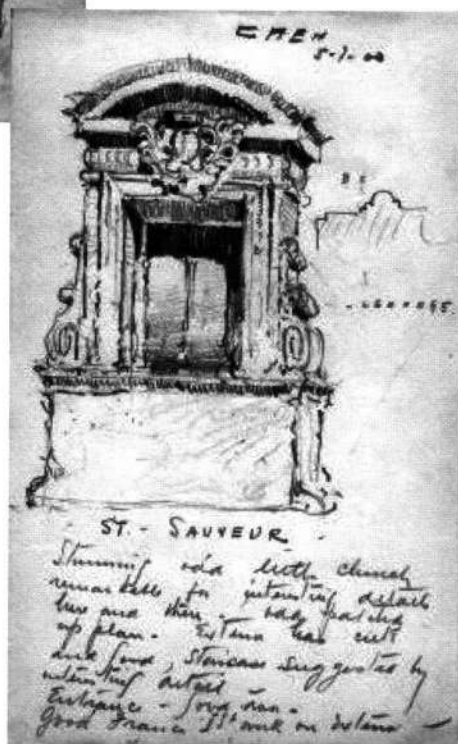 CAEN
5-7-00
ST. - SAUVEUR -
Stunning odd little church
remarkable for interesting details
here and there - patched
up plan - Exterior has
and good, Staircase suggested by
interesting detail
Entrance - Good
Good Francis 1st work on exterior -